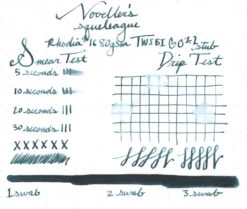 Noodler's
squeteague
Rhodia #16 80gsm TWSBI GO 1.1 stub
Smear Test
Drip Test
5 seconds
10 seconds
20 seconds
30 seconds
XXXXXX
1 swab 2 swab 3 swab